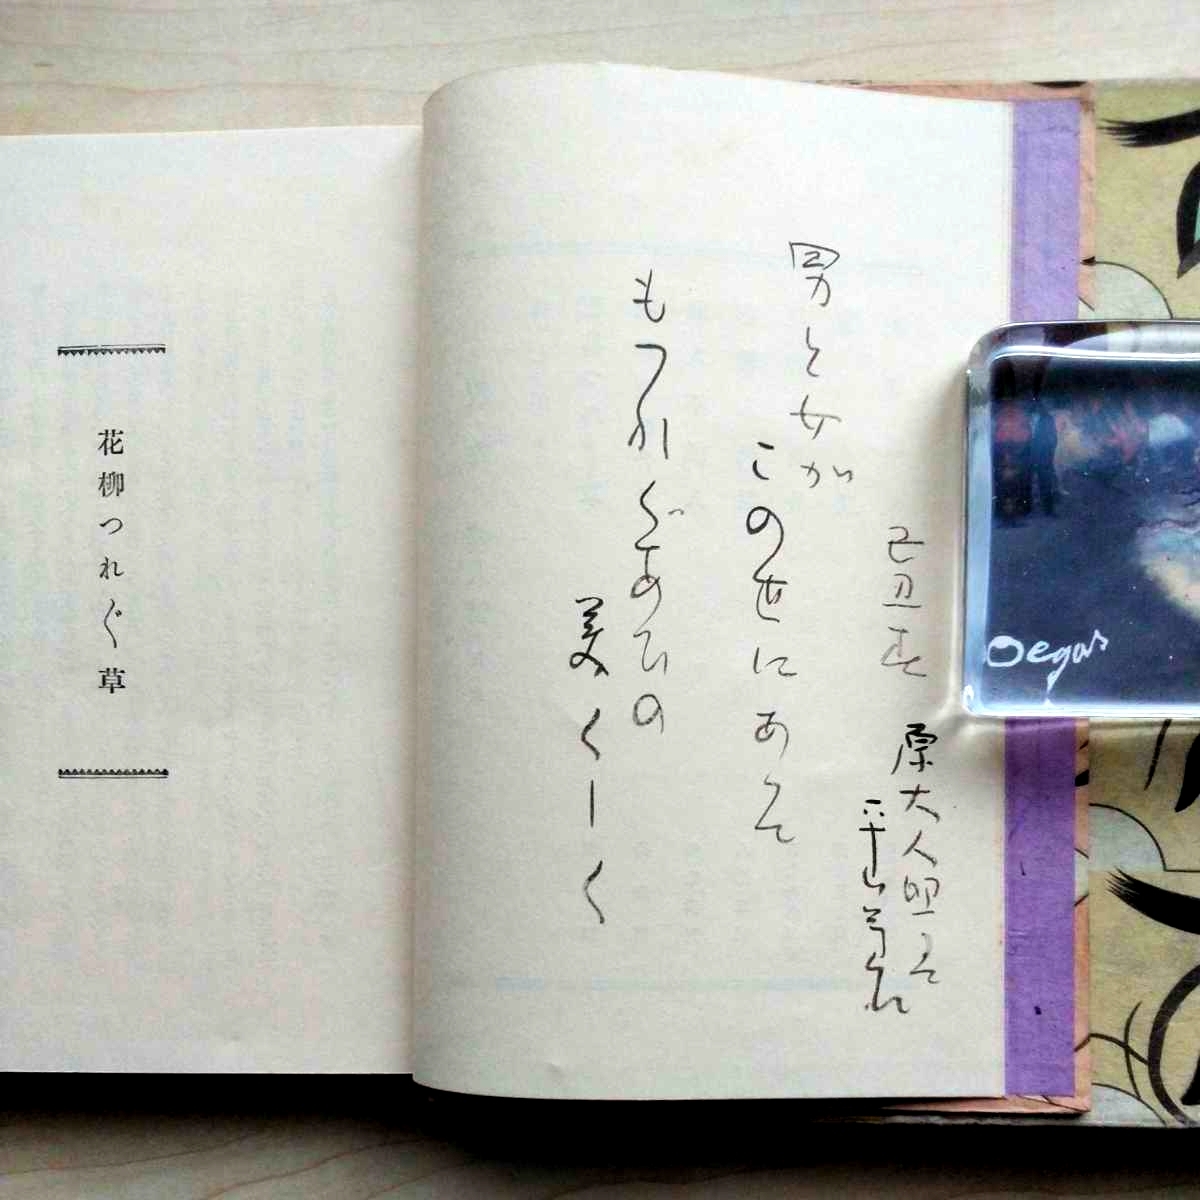 己丑春
原大人
男と女が
この世にあそ
もつれぐあひの
美くしく
花柳つれ〴〵草
Degas